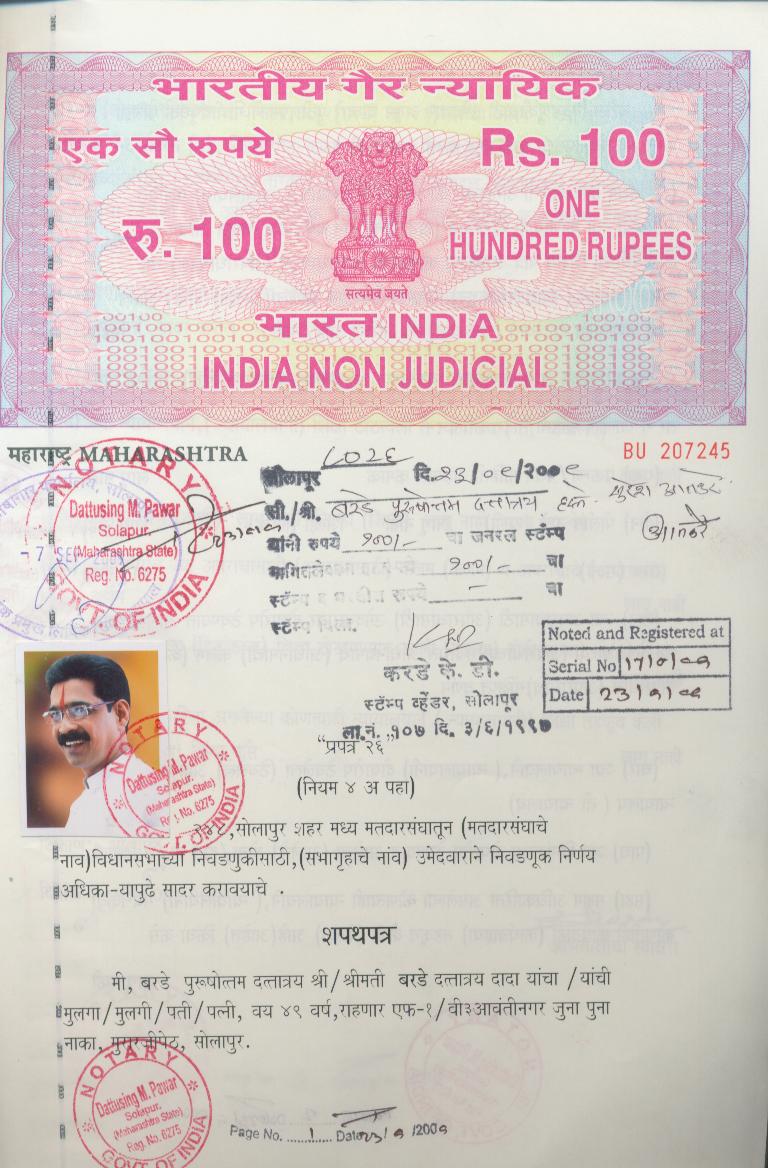 भारतीय गैर न्यायिक
एक सौ रुपये
Rs. 100
रु. 100
ONE
HUNDRED RUPEES
सत्यमेव जयते
भारत INDIA
INDIA NON JUDICIAL
महाराष्ट्र MAHARASHTRA
BU 207245
सोलापूर दि.२३/०९/२००९
सौ./श्री. बरडे पुरुषोत्तम दत्तात्रय
यांनी रुपये १००/- चा जनरल स्टॅम्प
१००/- चा
चा
करडे ले. डी.
स्टॅम्प व्हेंडर, सोलापूर
ला.नं. १०७ दि. ३/६/१९९७
Noted and Registered at
Serial No
Date 23
NOTARY
Dattusing M. Pawar
Solapur,
(Maharashtra State)
Reg. No. 6275
GOVT. OF INDIA
NOTARY
Dattusing M. Pawar
Solapur.
(Maharashtra State)
Reg. No. 6275
GOVT. OF INDIA
"प्रपत्र २६"
(नियम ४ अ पहा)
२४८,सोलापूर शहर मध्य मतदारसंघातून (मतदारसंघाचे
नाव)विधानसभाच्या निवडणुकीसाठी,(सभागृहाचे नांव) उमेदवाराने निवडणूक निर्णय
अधिका-यापुढे सादर करावयाचे .
शपथपत्र
मी, बरडे पुरूषोत्तम दत्तात्रय श्री/श्रीमती बरडे दत्तात्रय दादा यांचा /यांची
मुलगा/मुलगी/पती/पत्नी, वय ४९ वर्ष,राहणार एफ-१/बी३आवंतीनगर जुना पुना
नाका, मुरारजीपेठ, सोलापूर.
NOTARY
Dattusing M. Pawar
Solapur.
(Maharashtra State)
Reg. No. 6275
GOVT. OF INDIA
Page No. 1 Date /2009